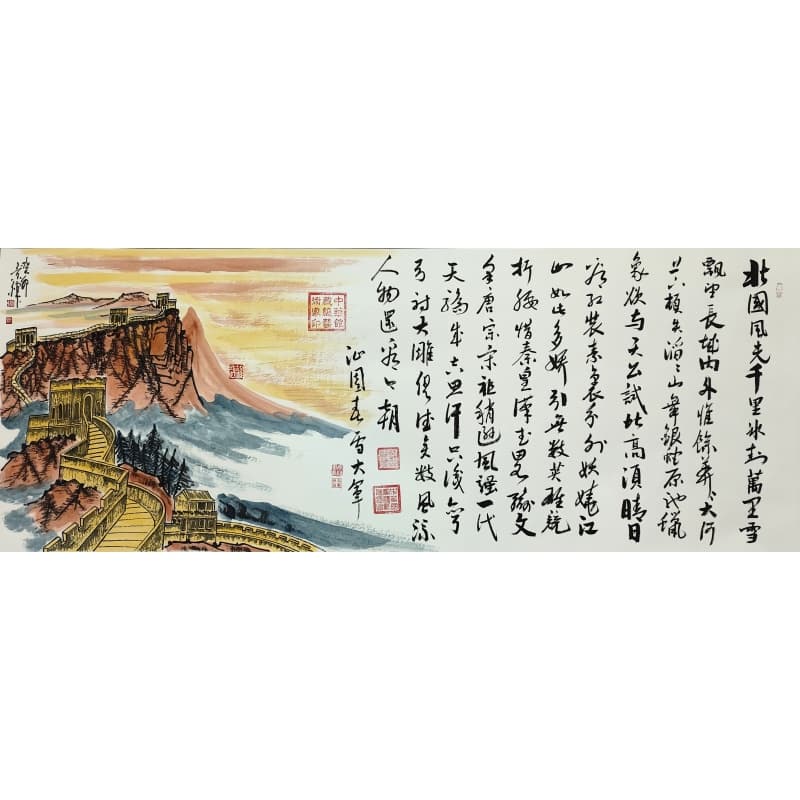 北國風光千里冰封萬里雪
飄望長城內外惟餘莽々大河
上下頓失滔々山舞銀蛇原馳蠟
象欲与天公試比高須晴日
看紅裝素裹分外妖嬈江
山如此多嬌引無數英雄競
折腰惜秦皇漢武略輸文
采唐宗宋祖稍遜風騷一代
天驕成吉思汗只識彎
弓射大雕俱往矣數風流
人物還看今朝
沁園春雪大軍